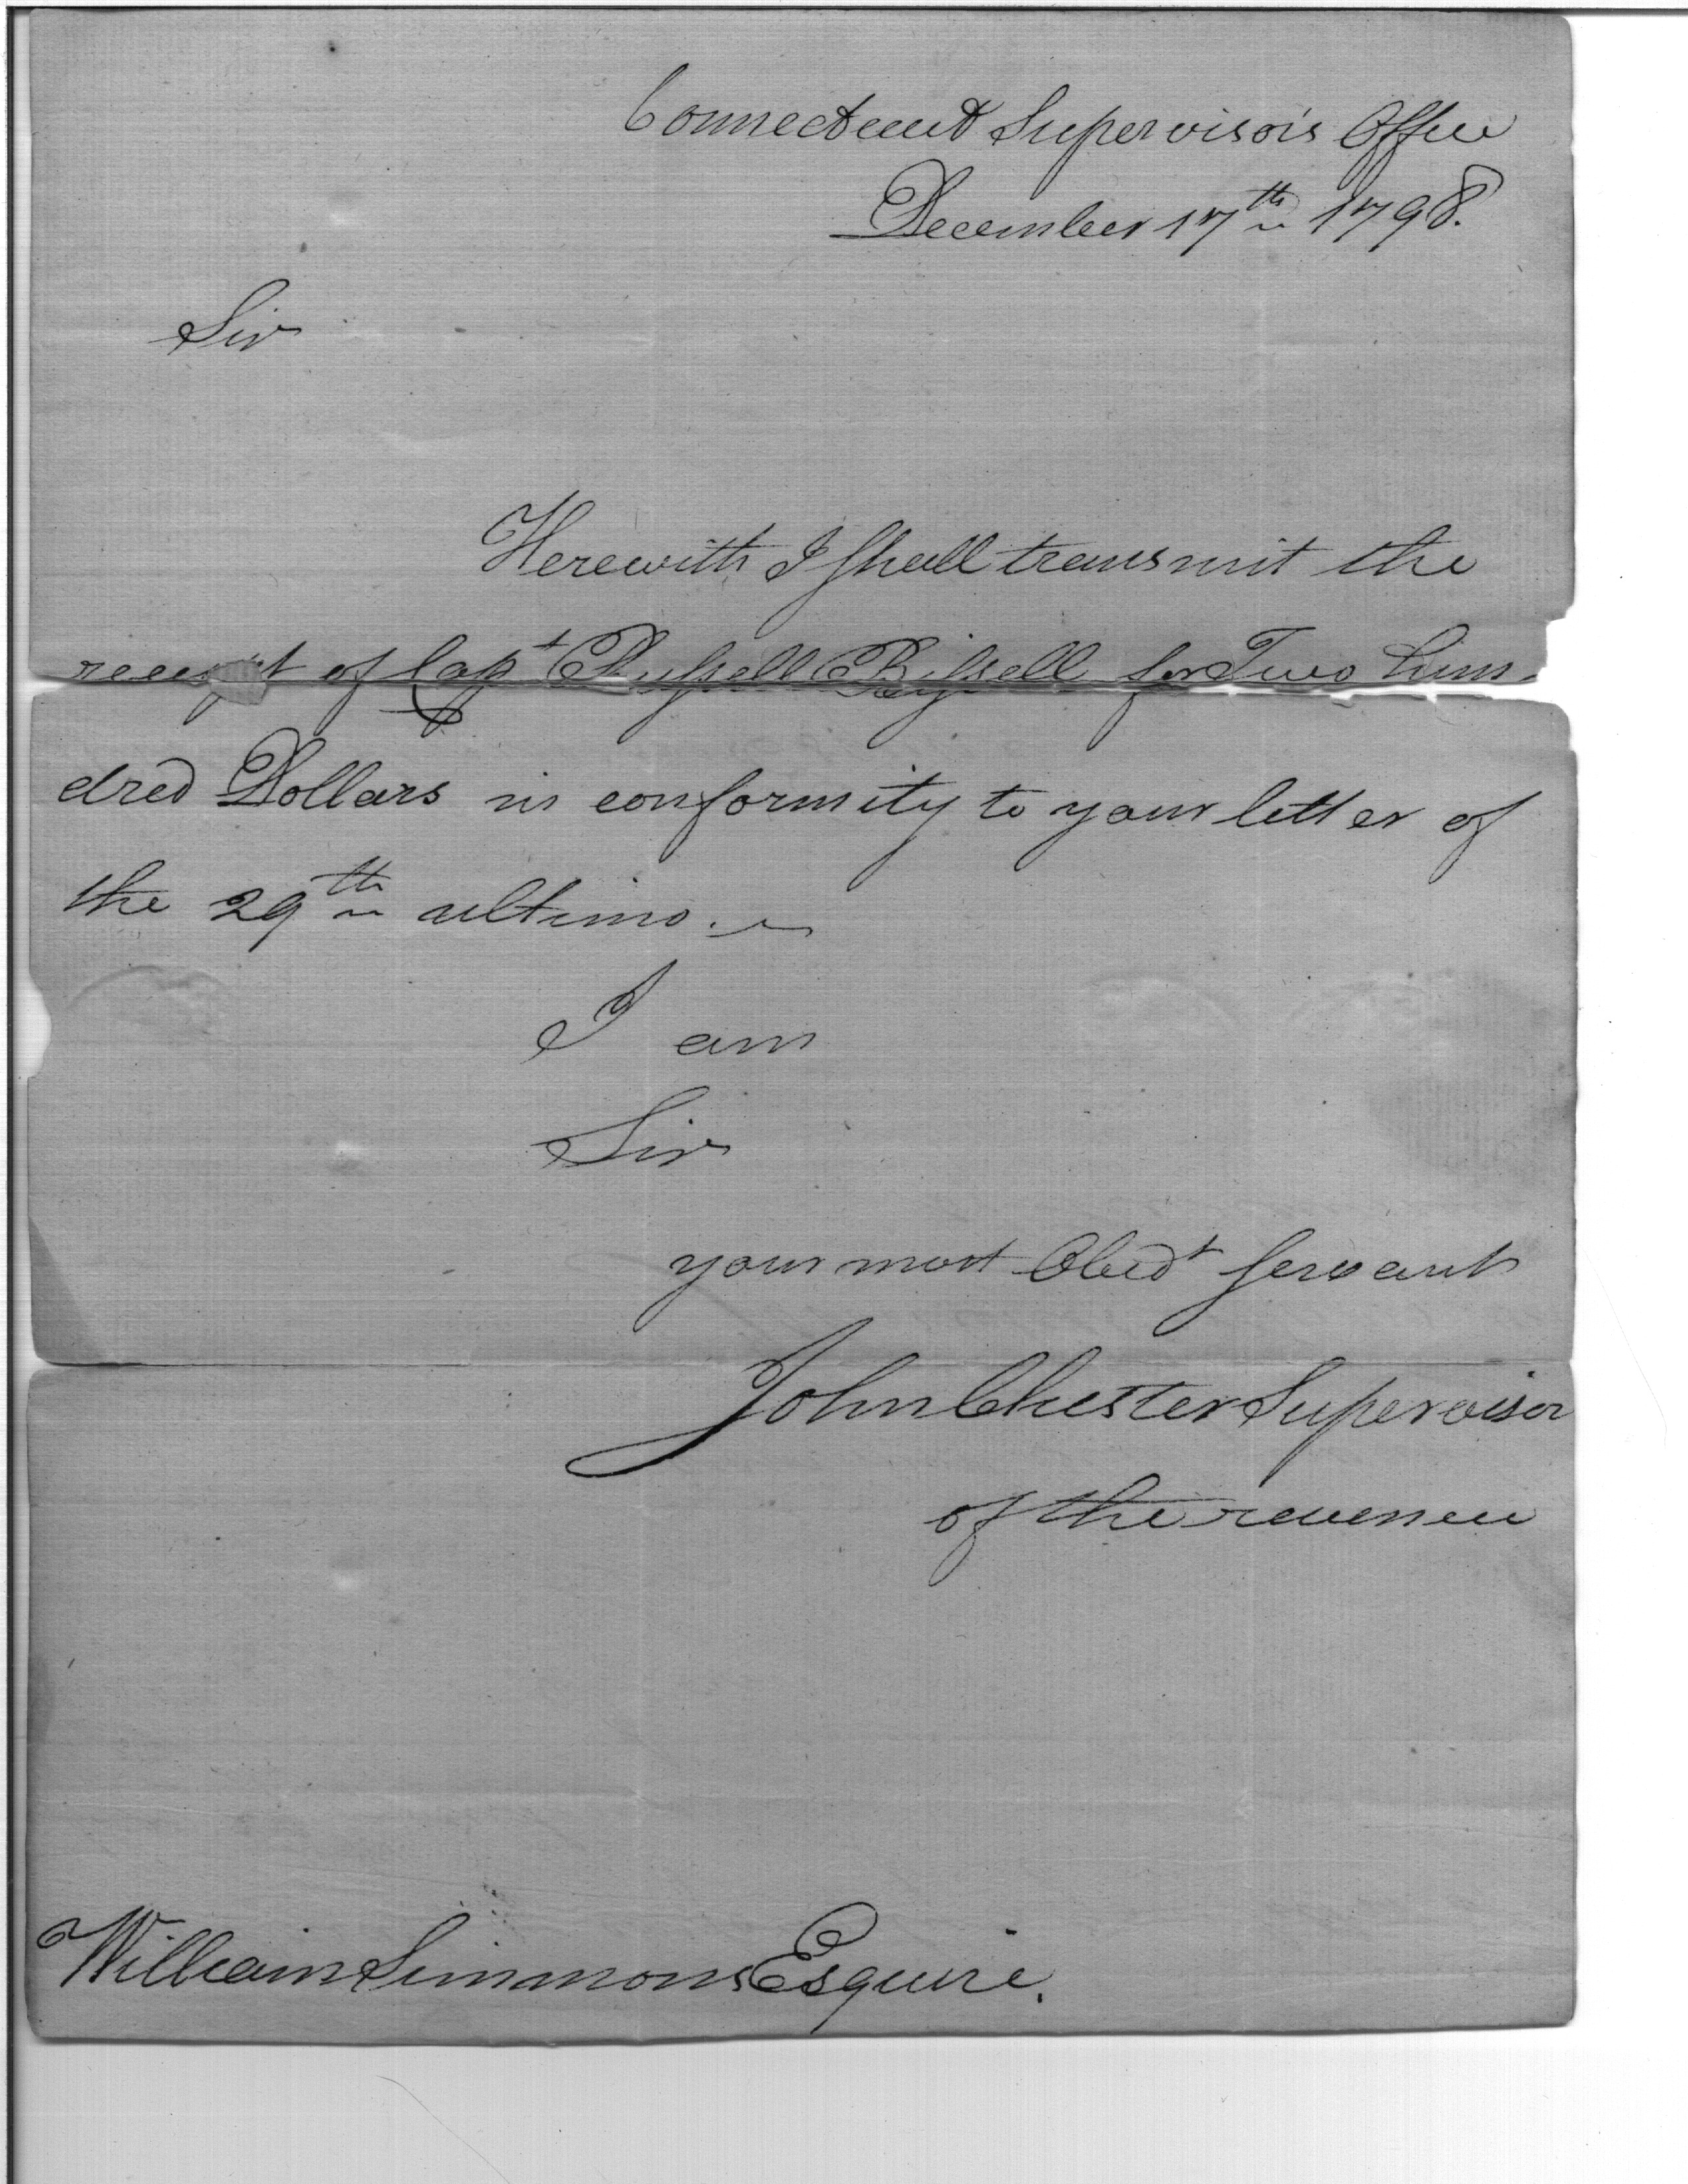 Connecticut Supervisor's Office
December 17th 1798.
Sir
Herewith I Shall transmit the
receipt of Capt Russell Bissell for Two hun-
dred Dollars in conformity to your letter of
the 29th ultimo.
I am
Sir
your most Obedt Servant
John Chester Supervisor
of the revenue
William Simmons Esquire.